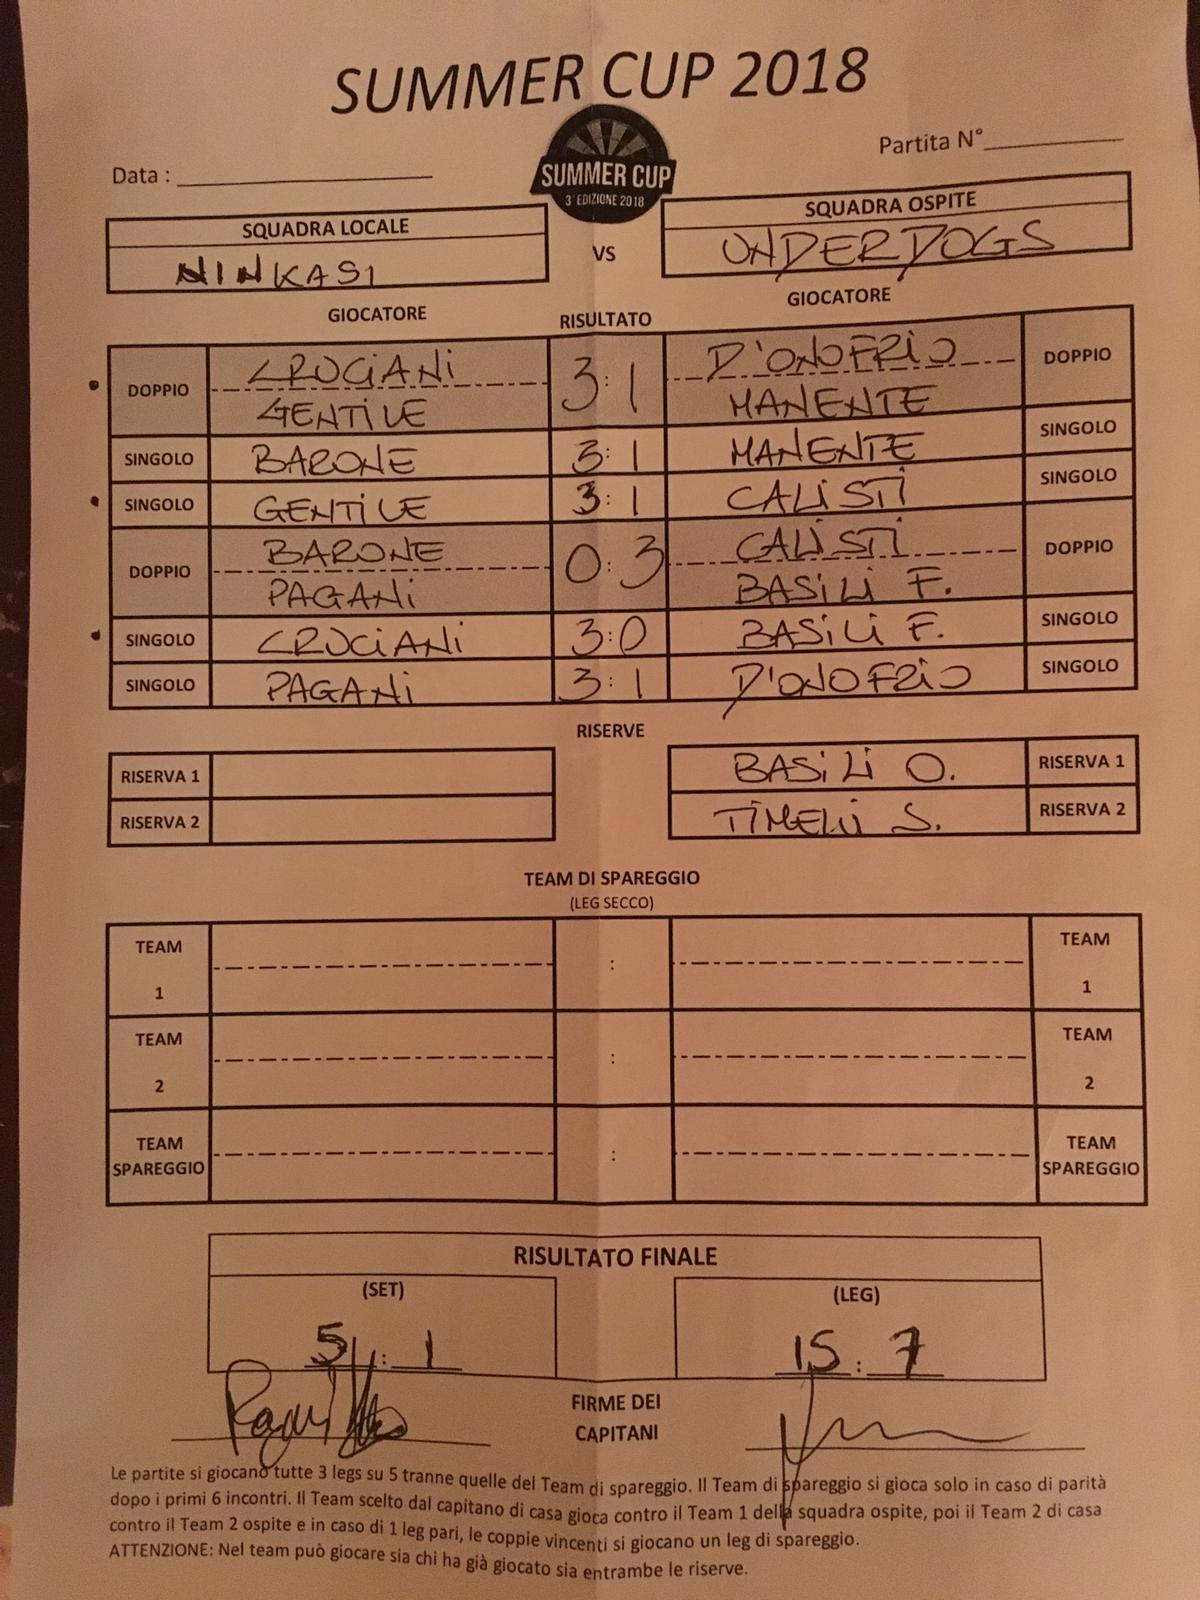 SUMMER CUP 2018
SUMMER CUP
3° EDIZIONE 2018
Data :
Partita N°
SQUADRA LOCALE
NINKASI
VS
SQUADRA OSPITE
UNDERDOGS
GIOCATORE RISULTATO GIOCATORE
DOPPIO CRUCIANI 3:1 D'ONOFRIO DOPPIO
GENTILE MANENTE
SINGOLO BARONE 3:1 MANENTE SINGOLO
SINGOLO GENTILE 3:1 CALISTI SINGOLO
DOPPIO BARONE 0:3 CALISTI DOPPIO
PAGANI BASILI F.
SINGOLO CRUCIANI 3:0 BASILI F. SINGOLO
SINGOLO PAGANI 3:1 D'ONOFRIO SINGOLO
RISERVE
RISERVA 1 BASILI O. RISERVA 1
RISERVA 2 TIMELLI S. RISERVA 2
TEAM DI SPAREGGIO
(LEG SECCO)
TEAM 1 : TEAM 1
TEAM 2 : TEAM 2
TEAM SPAREGGIO : TEAM SPAREGGIO
RISULTATO FINALE
(SET) (LEG)
5 : 1 15 : 7
FIRME DEI
CAPITANI
Le partite si giocano tutte 3 legs su 5 tranne quelle del Team di spareggio. Il Team di spareggio si gioca solo in caso di parità
dopo i primi 6 incontri. Il Team scelto dal capitano di casa gioca contro il Team 1 della squadra ospite, poi il Team 2 di casa
contro il Team 2 ospite e in caso di 1 leg pari, le coppie vincenti si giocano un leg di spareggio.
ATTENZIONE: Nel team può giocare sia chi ha già giocato sia entrambe le riserve.